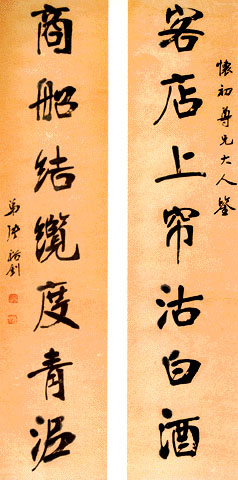 懷初尊兄大人鑒
客店上帘沽白酒
商船結纜度青
弟張裕釗